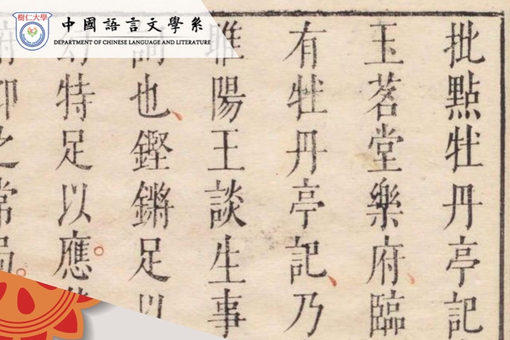 樹仁大學
中國語言文學系
DEPARTMENT OF CHINESE LANGUAGE AND LITERATURE
批點牡丹亭記
玉茗堂樂府臨
有牡丹亭記乃
睢陽王談生事
也鏗鏘足以
特足以應
之常